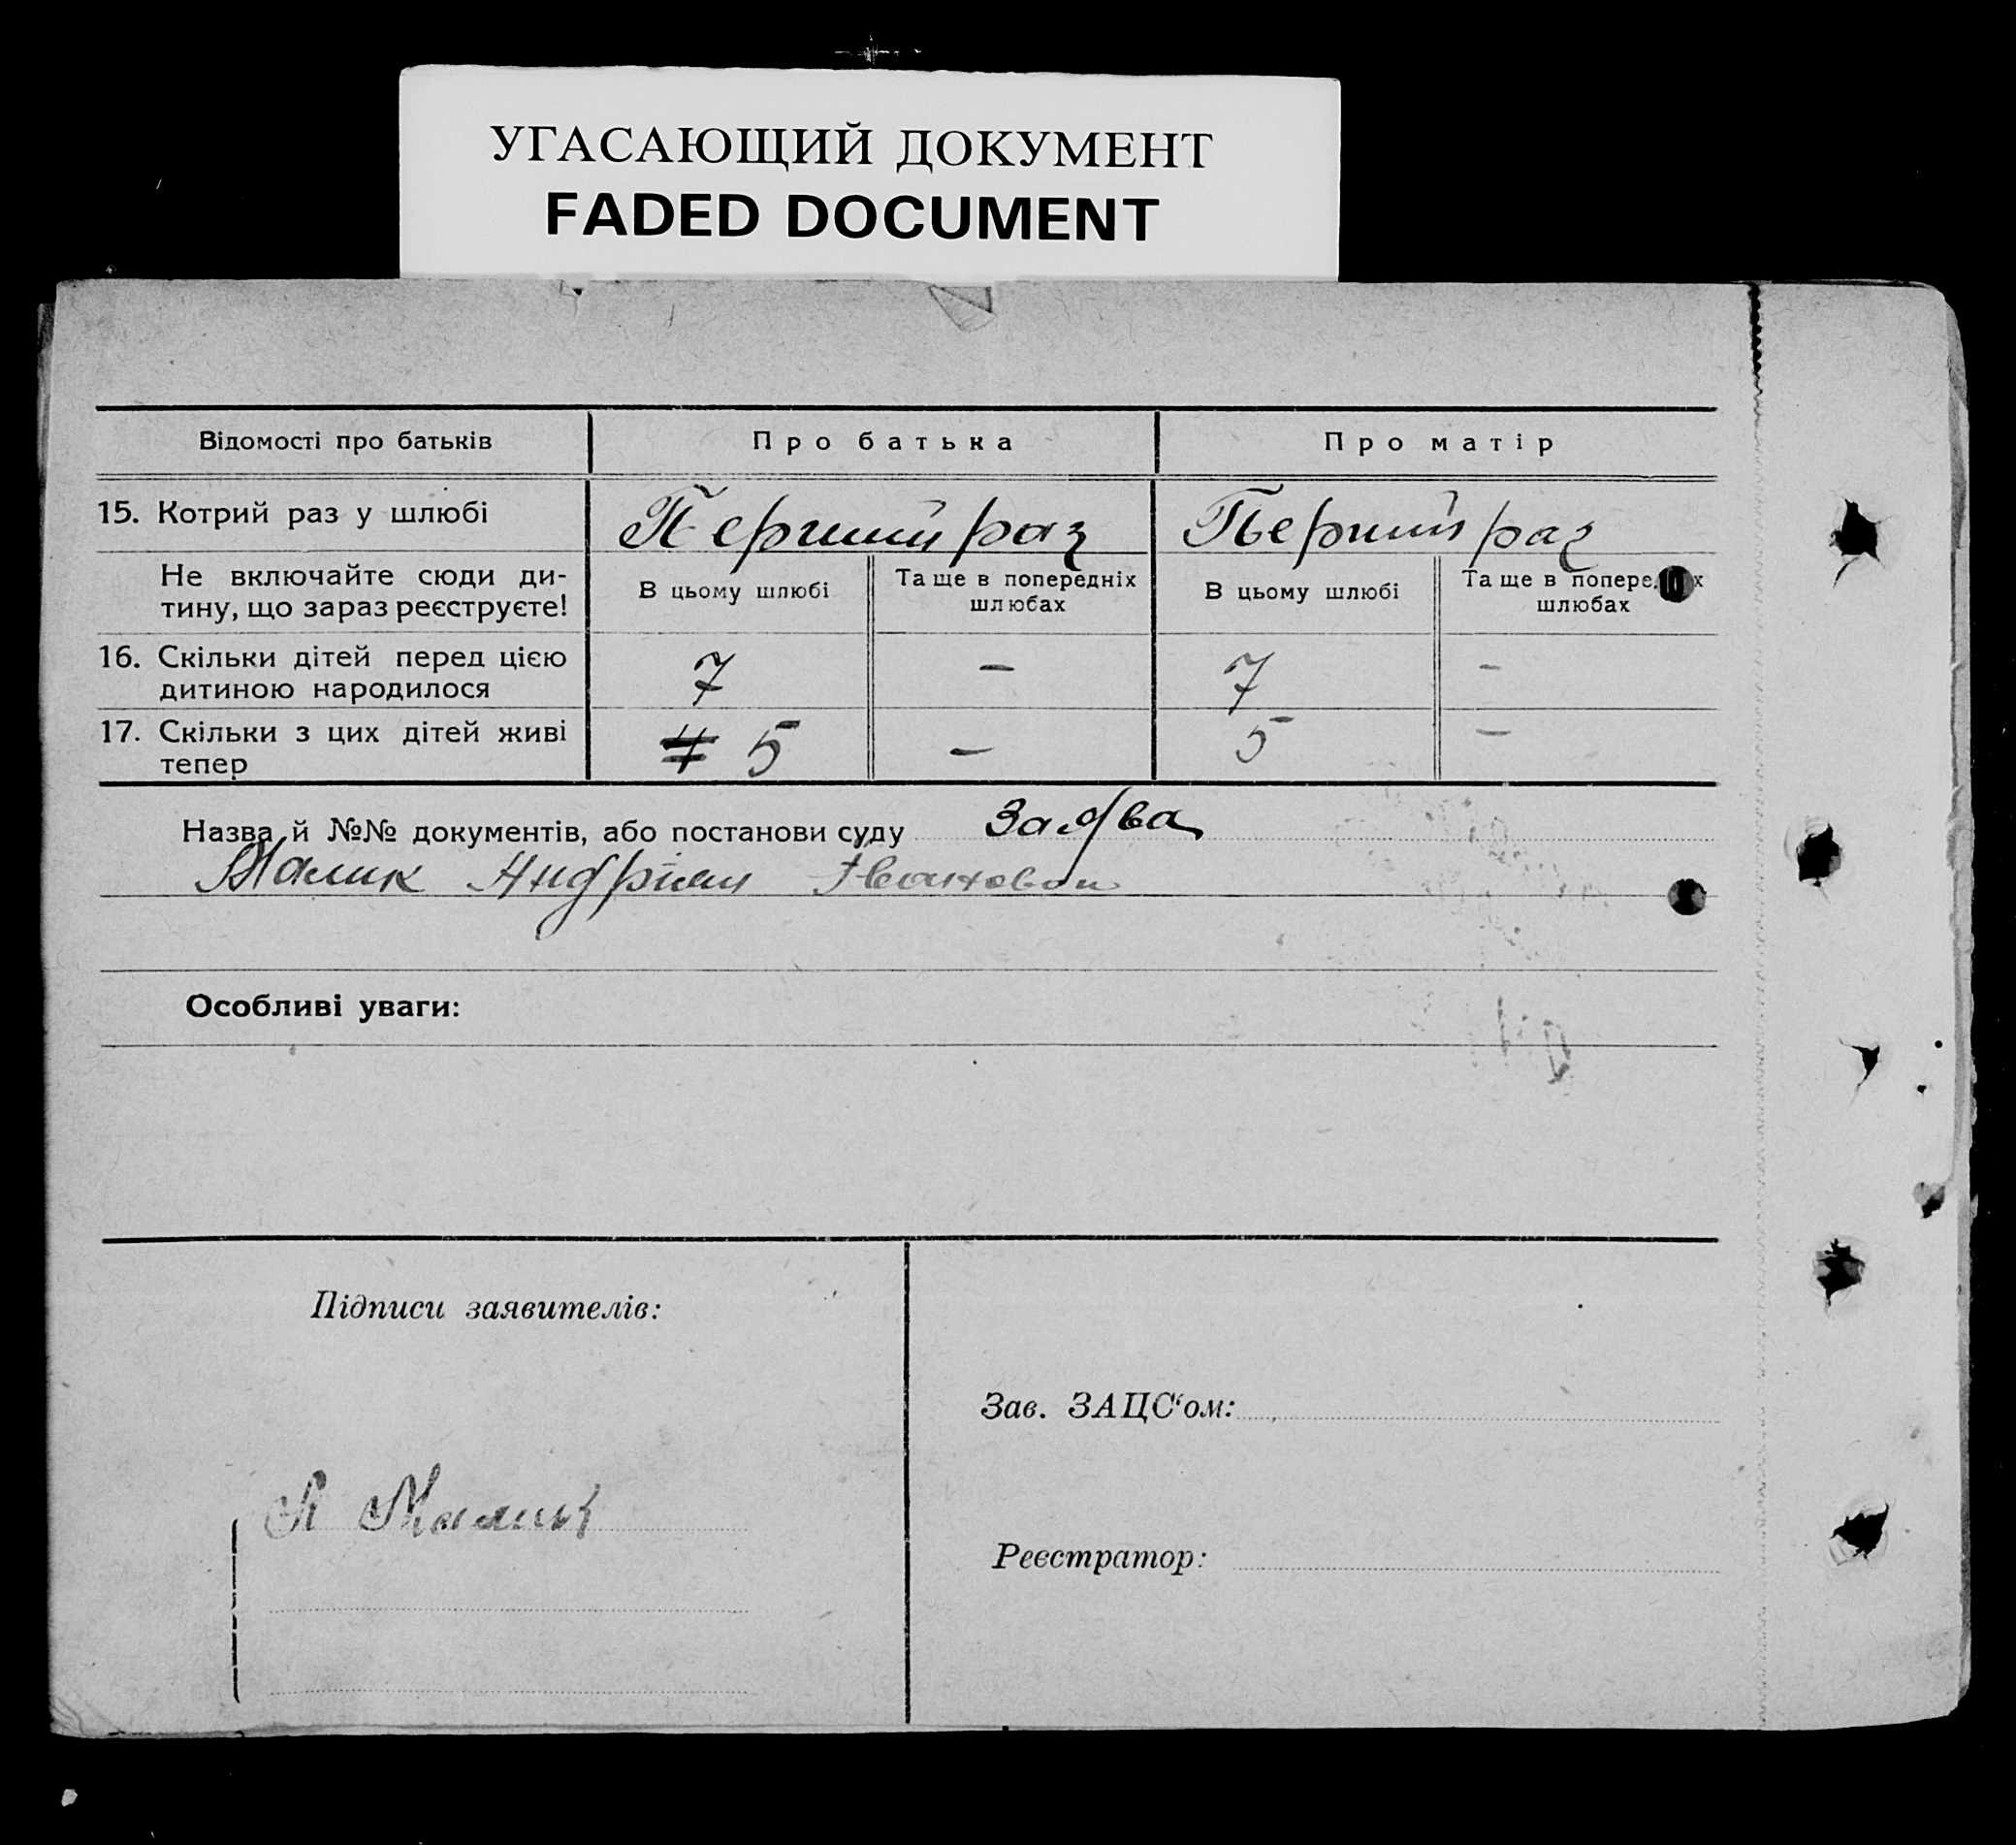 УГАСАЮЩИЙ ДОКУМЕНТ
FADED DOCUMENT
Відомості про батьків
Про батька
Про матір
15. Котрий раз у шлюбі
Перший раз
Перший раз
Не включайте сюди ди-
тину, що зараз реєструєте!
В цьому шлюбі
Та ще в попередніх
шлюбах
В цьому шлюбі
Та ще в попере х
шлюбах
16. Скільки дітей перед цією
дитиною народилося
7
–
7
–
17. Скільки з цих дітей живі
тепер
5
–
5
–
Назва й №№ документів, або постанови суду Заява
Малик Андріян
Особливі уваги:
Підписи заявителів:
Зав. ЗАЦС‘ом:
Малик
Реєстратор: